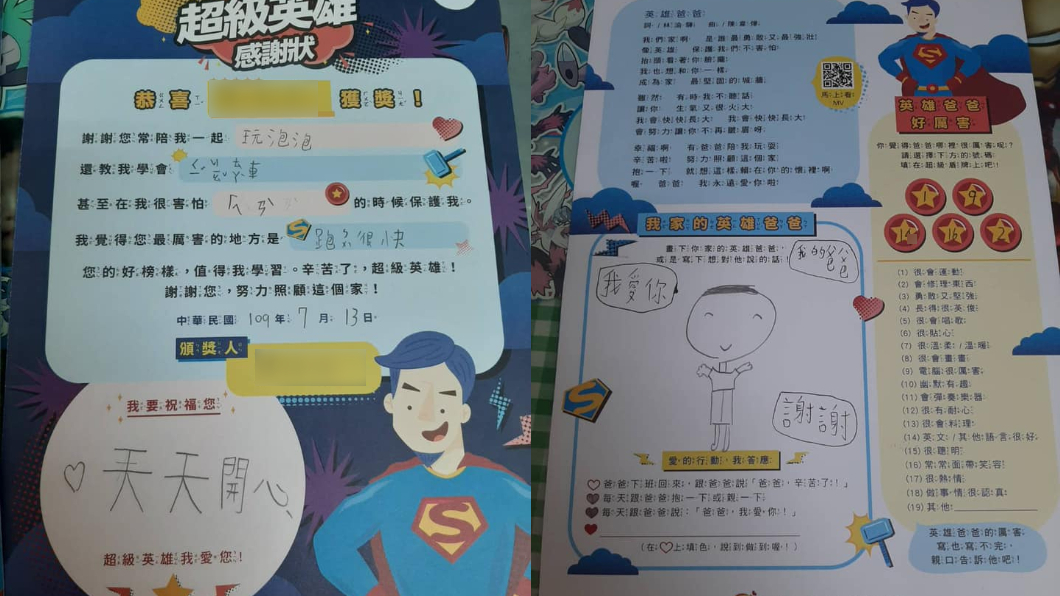 超級英雄
感謝狀
恭喜
獲獎！
謝謝您常陪我一起 玩泡泡
還教我學會
甚至在我很害怕
的時候保護我。
我覺得您最厲害的地方是 跑很快
您的好榜樣，值得我學習。辛苦了，超級英雄！
謝謝您，努力照顧這個家！
中華民國 109 年 7 月 13 日
頒獎人
我要祝福您
天天開心
超級英雄我愛您！
英雄爸爸
我們家啊 是最勇敢又最強壯
像英雄 保護我們不害怕
抬頭看著你
我也想和你一樣
成為家 最堅固的城牆
雖然 有時我不聽話
讓你 生氣又很火大
我會快快長大 我會快快長大
會努力讓你不再皺眉呀
幸福啊 有爸爸陪我玩耍
辛苦啦 努力照顧這個家
抱一下 就想這樣賴在你的懷裡啊
喔 爸爸 我永遠愛你啦
馬上看
MV
英雄爸爸
好厲害
你覺得爸爸哪裡很厲害呢？
請選擇下方的號碼，
填在超級星牌上吧！
1 9
14 16 2
(1) 很會運動
(2) 會修理東西
(3) 勇敢又堅強
(4) 長得很英俊
(5) 很會唱歌
(6) 很貼心
(7) 很溫柔/溫暖
(8) 很會畫畫
(9) 電腦很厲害
(10) 幽默有趣
(11) 會彈奏樂器
(12) 很有耐心
(13) 很會料理
(14) 英文/其他語言很好
(15) 很聰明
(16) 常常面帶笑容
(17) 很熱情
(18) 做事情很認真
(19) 其他
英雄爸爸的厲害，
寫也寫不完，
親口告訴他吧！
我家的英雄爸爸
畫下你家的英雄爸爸，
或是寫下想對他說的話！
我的爸爸
我愛你
謝謝
愛的行動，我答應
爸爸下班回來，跟爸爸說「爸爸，辛苦了！」
每天跟爸爸抱一下或親一下
每天跟爸爸說：「爸爸，我愛你！」
（在♡上填色，說到做到喔！）